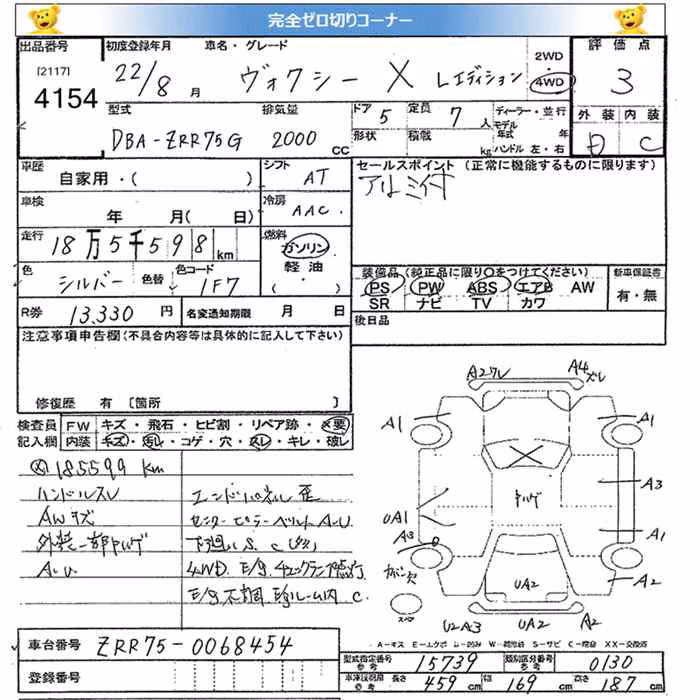 完全ゼロ切りコーナー
出品番号 初度登録年月 車名・グレード 2WD・4WD 評価点
[2117]
4154 22/8月 ヴォクシー X Lエディション 3
型式 排気量 ドア 5 定員 7人 ディーラー・並行 外装 内装
DBA-ZRR75G 2000cc 形状 積載 kg モデル年式 年 ハンドル 左・右 D C
車歴 自家用・( ) シフト AT セールスポイント (正常に機能するものに限ります)
車検 年 月( 日) 冷房 AAC アルミ付
走行 18万5千598km 燃料 ガソリン・軽油・( )
色 シルバー 色替 色コード 1F7 装備品(純正品に限り○をつけてください) 新車保証書
PS PW ABS エアB AW 有・無
SR ナビ TV カワ
R券 13,330円 名変通知期限 月 日 後日品
注意事項申告欄(不具合内容等は具体的に記入して下さい)
修復歴 有 〔箇所 〕
検査員記入欄 FW キズ・飛石・ヒビ割・リペア跡・×要
内装 キズ・汚レ・コゲ・穴・スレ・キレ・破レ
185599 km
ハンドルスレ エンドパネル歪
AWキズ センターピラーベルトA-U
下廻り S.C
A.U 4WD E/g チェックランプ点灯
E/g不調 E/gルーム内 C
A2ワレ A4ズレ
A1 A1
A3
UA1
A3 A1
A2
UA2
スペア
U2A3 UA2 A2
車台番号 ZRR75-0068454
登録番号
型式指定番号 参考 15739 類別区分番号 参考 0130
長さ 459cm 幅 169cm 高さ 187cm